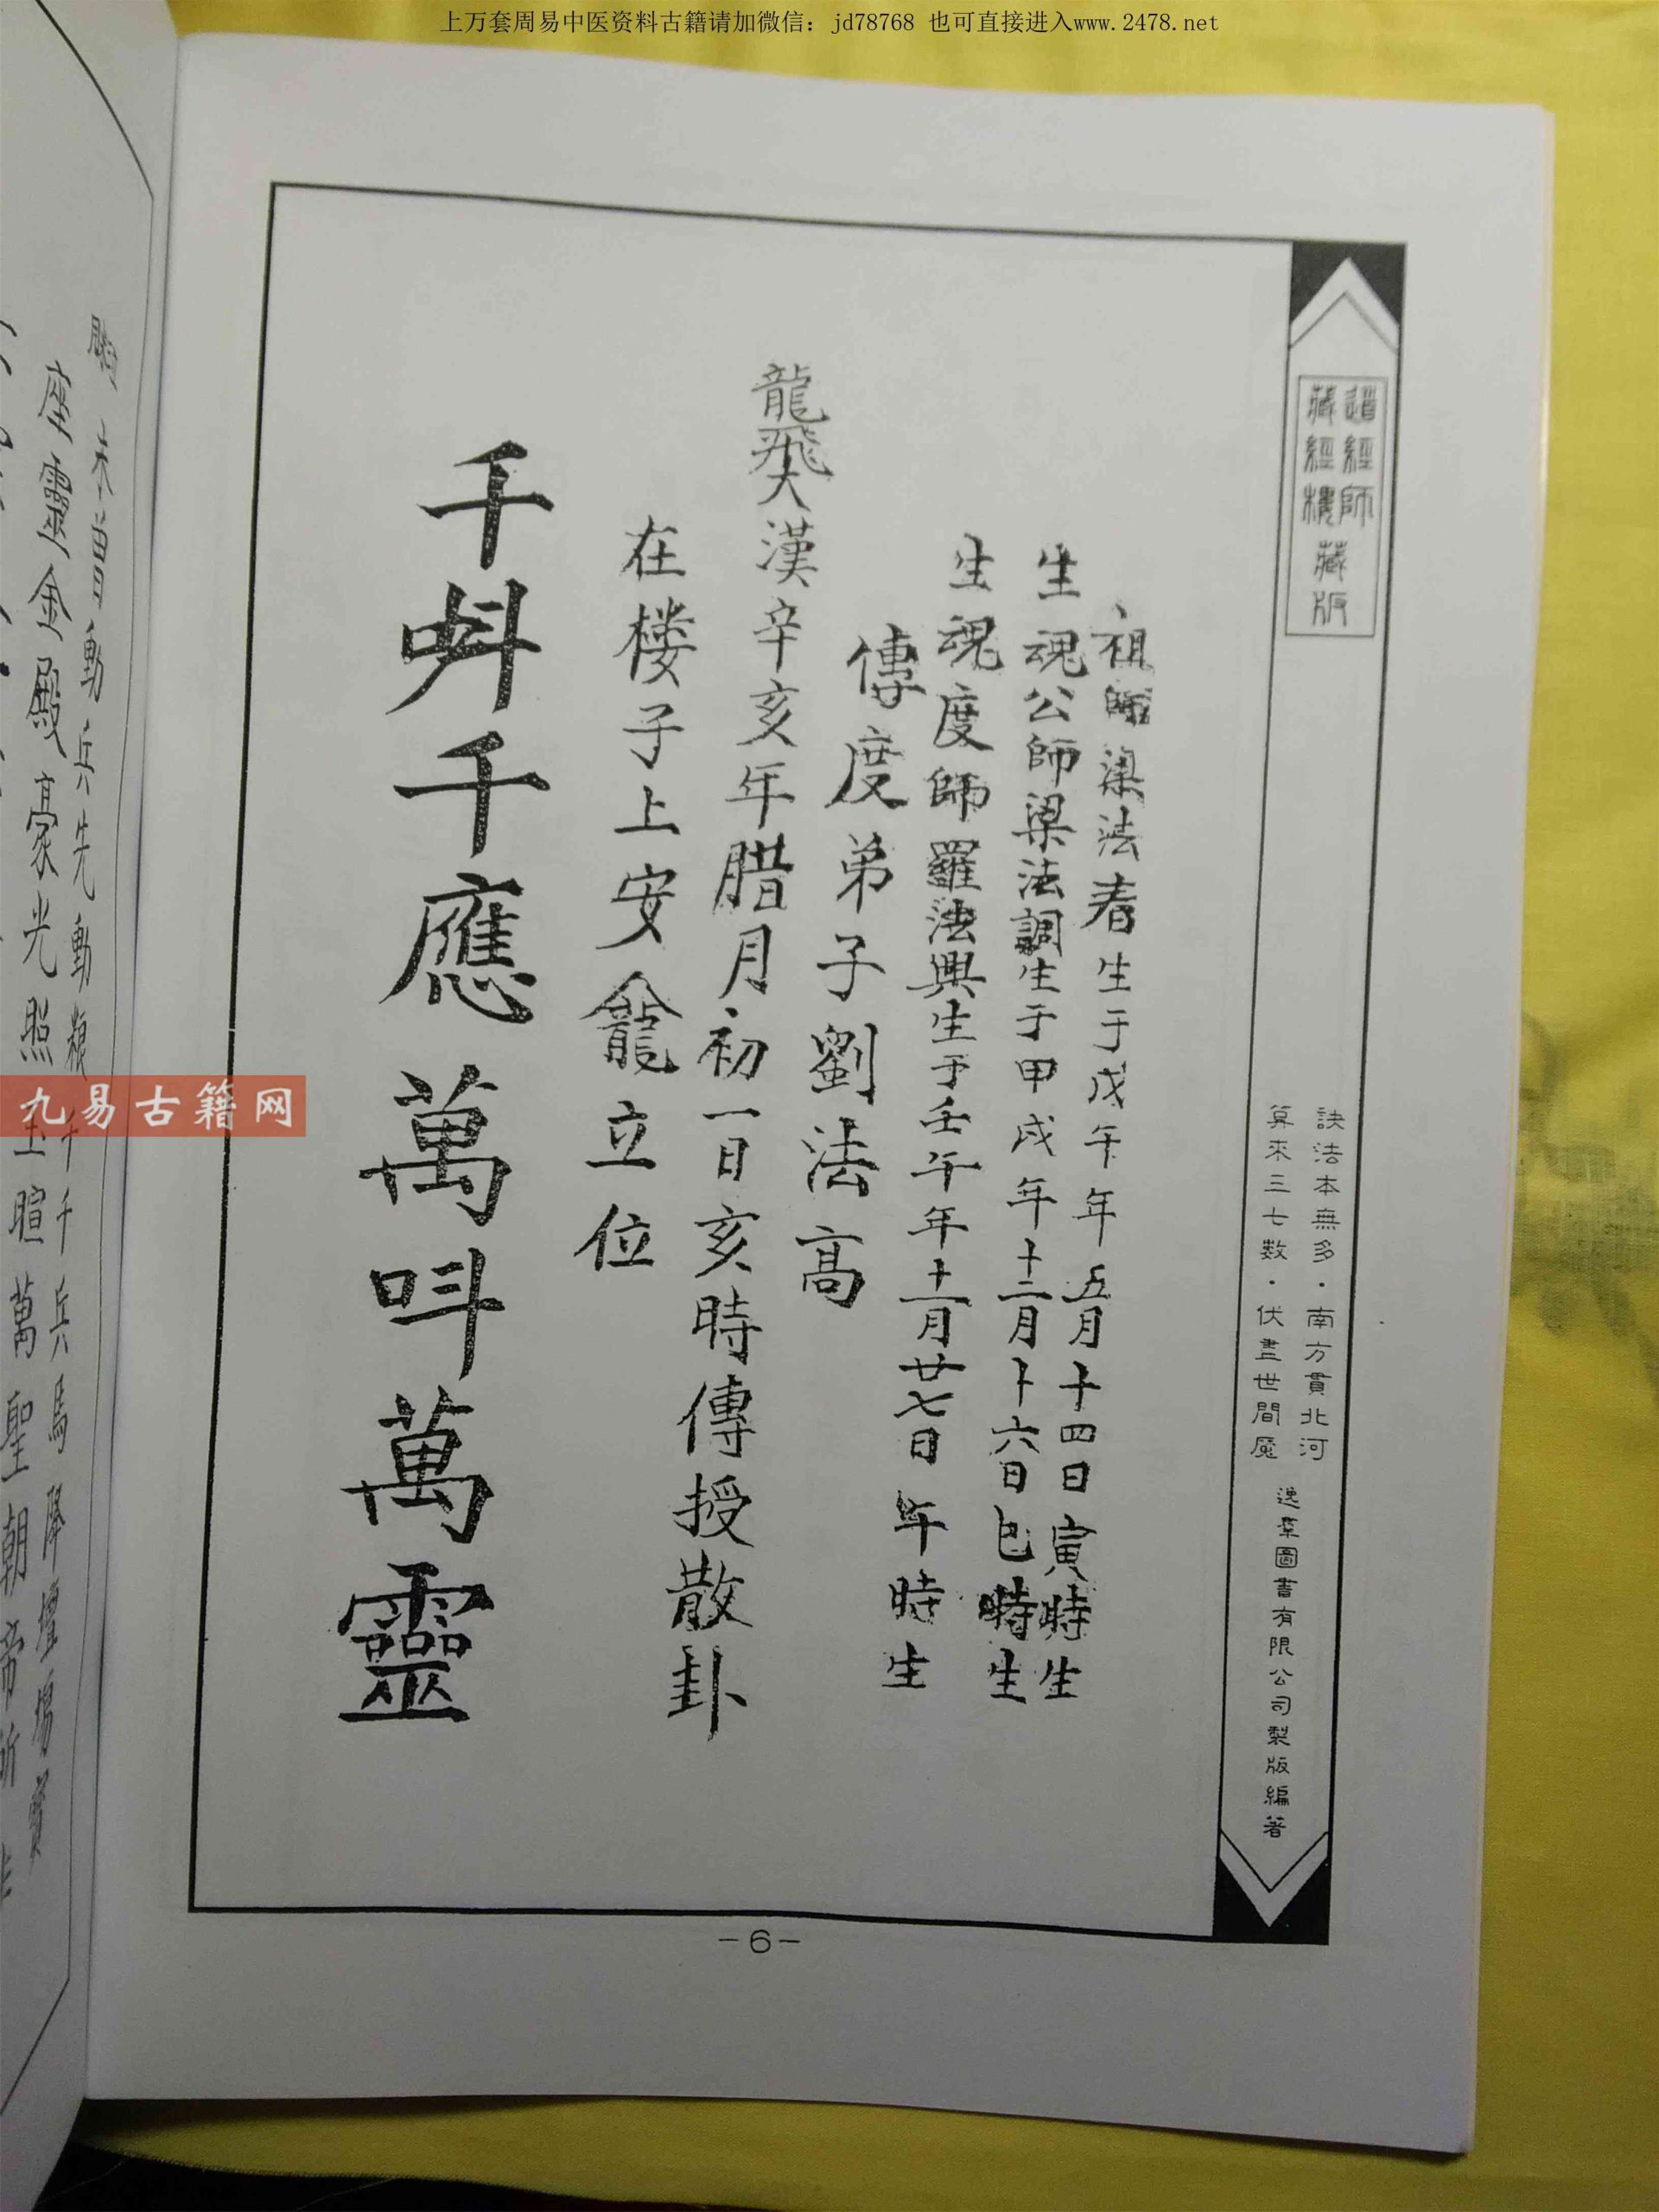 上万套周易中医资料古籍请加微信：jd78768 也可直接进入www.2478.net
道經師
藏經樓
藏版
訣法本無多·南方貫北河
算來三七數·伏盡世間魔
逸羣圖書有限公司製版編著
祖師梁法春生于戊午年五月十四日寅時生
生魂公師梁法調生于甲戌年十二月十六日巳時生
生魂度師羅法興生于壬午年十一月廿七日午時生
傳度弟子劉法高
龍飛大漢辛亥年腊月初一日亥時傳授散卦
在楼子上安龕立位
千呌千應萬呌萬靈
-6-
九易古籍网
未曾動兵先動糧 千千兵馬降壇場
座靈金殿豪光照 玉暄萬聖朝帝所